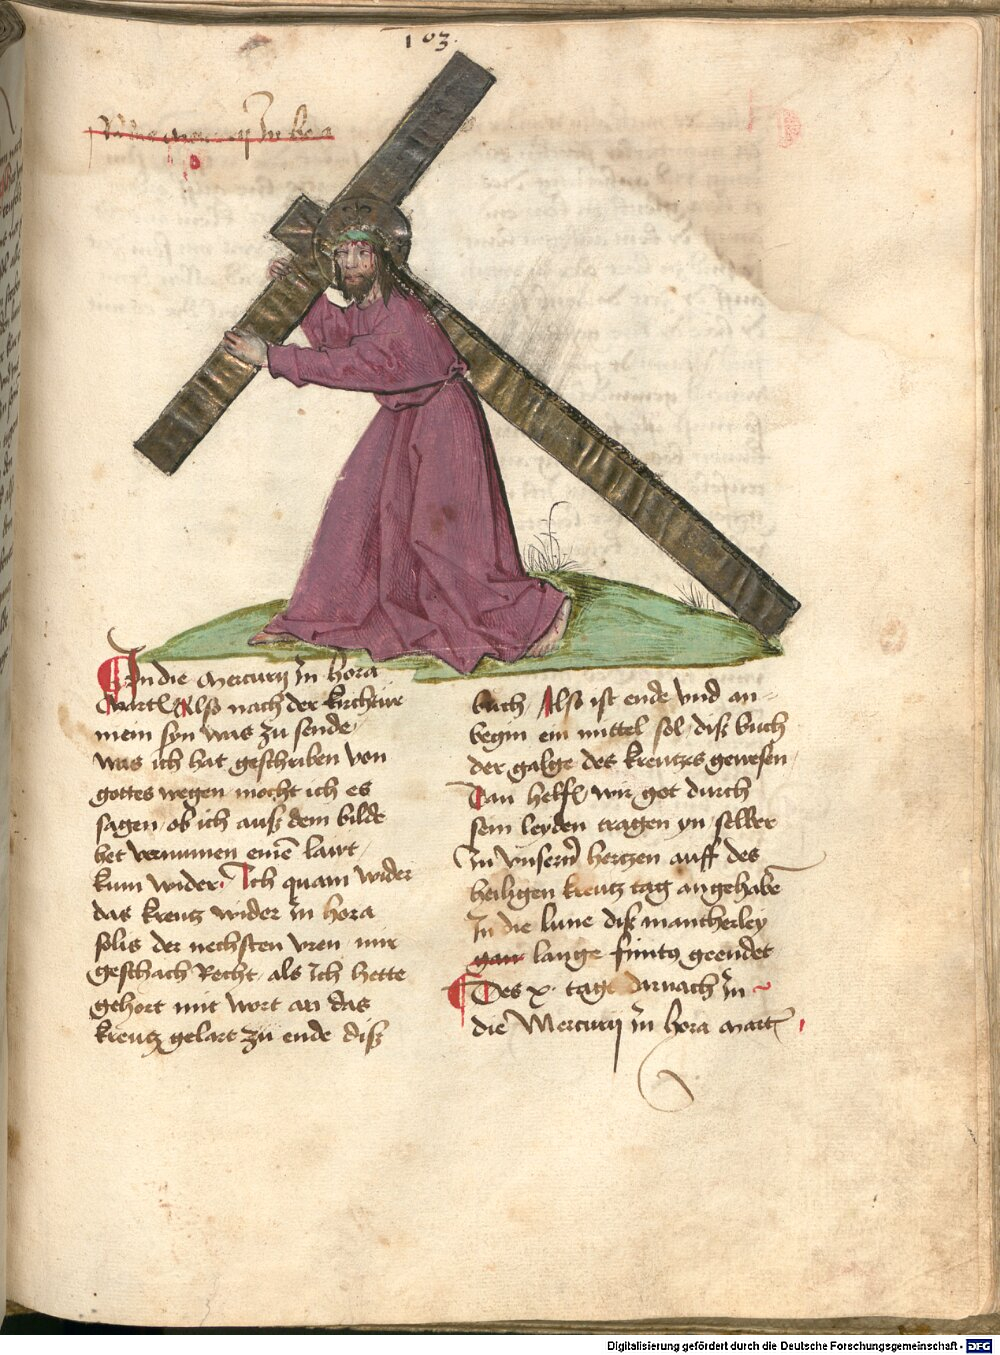 103.
In die mercurij In hora
martis Also nach der kirchtür
mein syn was zu sende
was ich hat geschriben von
gottes wegen mocht ich es
sagen ob ich auß dem bilde
het vernumen einē lawt
kum wider. Ich quam wider
das kreutz wider In hora
solis der nechsten vren mir
geschach Recht als Ich hette
gehort mit wort an das
kreutz gelart zu ende diß
buch, Also ist ende vnd an-
begin ein mittel sol diß buch
der galge des kreutzes gewesen
Dan helff wir got durch
sein leyden tragen yn selber
In vnsern hertzen auff des
heiligen kreutz tag angehabē
In die lune diß mancherley
gar lange finito geendet
Des x. tage darnach In
die Mercurij In hora martis
Digitalisierung gefördert durch die Deutsche Forschungsgemeinschaft - DFG